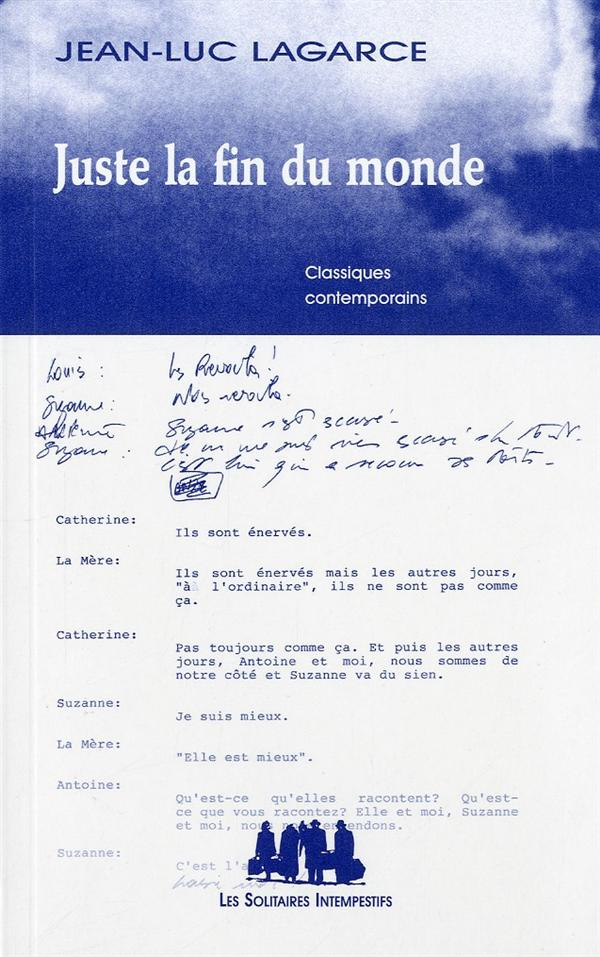 JEAN-LUC LAGARCE
Juste la fin du monde
Classiques
contemporains
Louis :
Suzanne :
Suzanne
Suzanne :
Catherine:
Ils sont énervés.
La Mère:
Ils sont énervés mais les autres jours,
"à l'ordinaire", ils ne sont pas comme
ça.
Catherine:
Pas toujours comme ça. Et puis les autres
jours, Antoine et moi, nous sommes de
notre côté et Suzanne va du sien.
Suzanne:
Je suis mieux.
La Mère:
"Elle est mieux".
Antoine:
Qu'est-ce qu'elles racontent? Qu'est-
ce que vous racontez? Elle et moi, Suzanne
et moi, nous
Suzanne:
C'est
LES SOLITAIRES INTEMPESTIFS